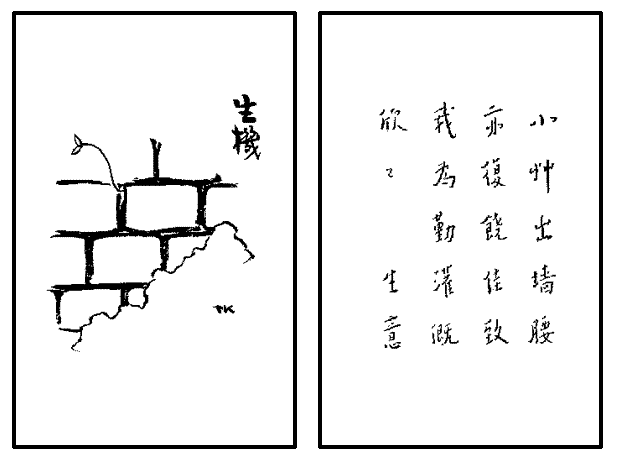 生機
TK
小艸出墙腰
亦復饒佳致
我為勤灌溉
欣々生意